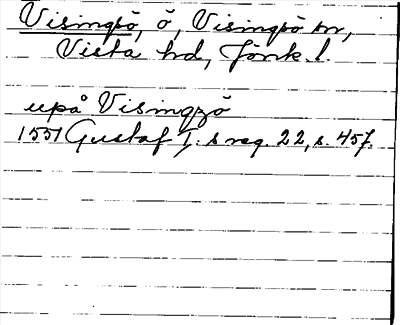 Visingsö, ö, Visingsö sn,
Vista hd, Jönk. l.
upå Visingzö
1551 Gustaf I:s reg. 22, s. 457.